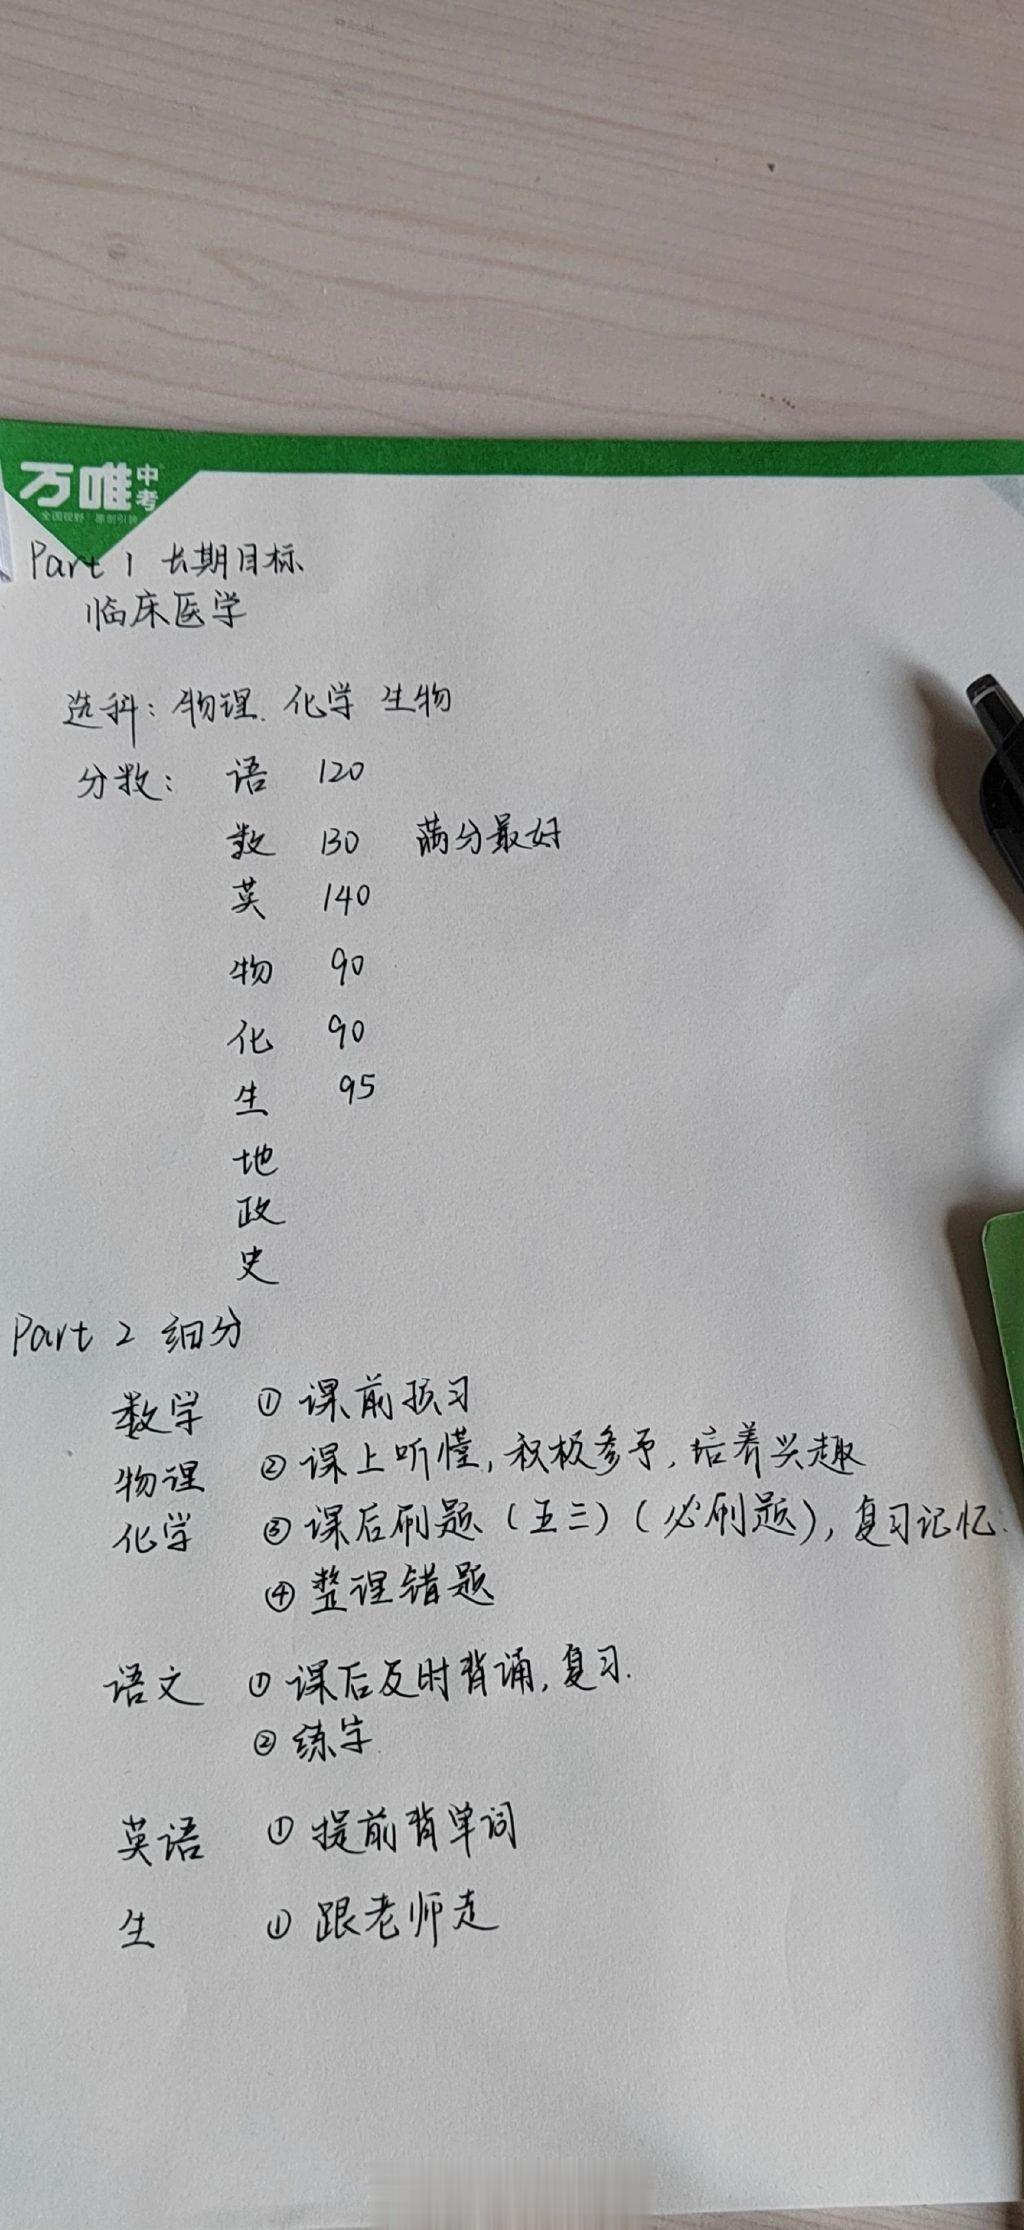 万唯中考
全国视野 原创引领
Part 1 长期目标
临床医学
选科：物理. 化学 生物
分数： 语 120
数 130 满分最好
英 140
物 90
化 90
生 95
地
政
史
Part 2 细分
数学 ① 课前预习
物理 ② 课上听懂, 积极参予, 培养兴趣
化学 ③ 课后刷题 (五三) (必刷题), 复习记忆.
④ 整理错题
语文 ① 课后及时背诵, 复习.
② 练字
英语 ① 提前背单词
生 ① 跟老师走